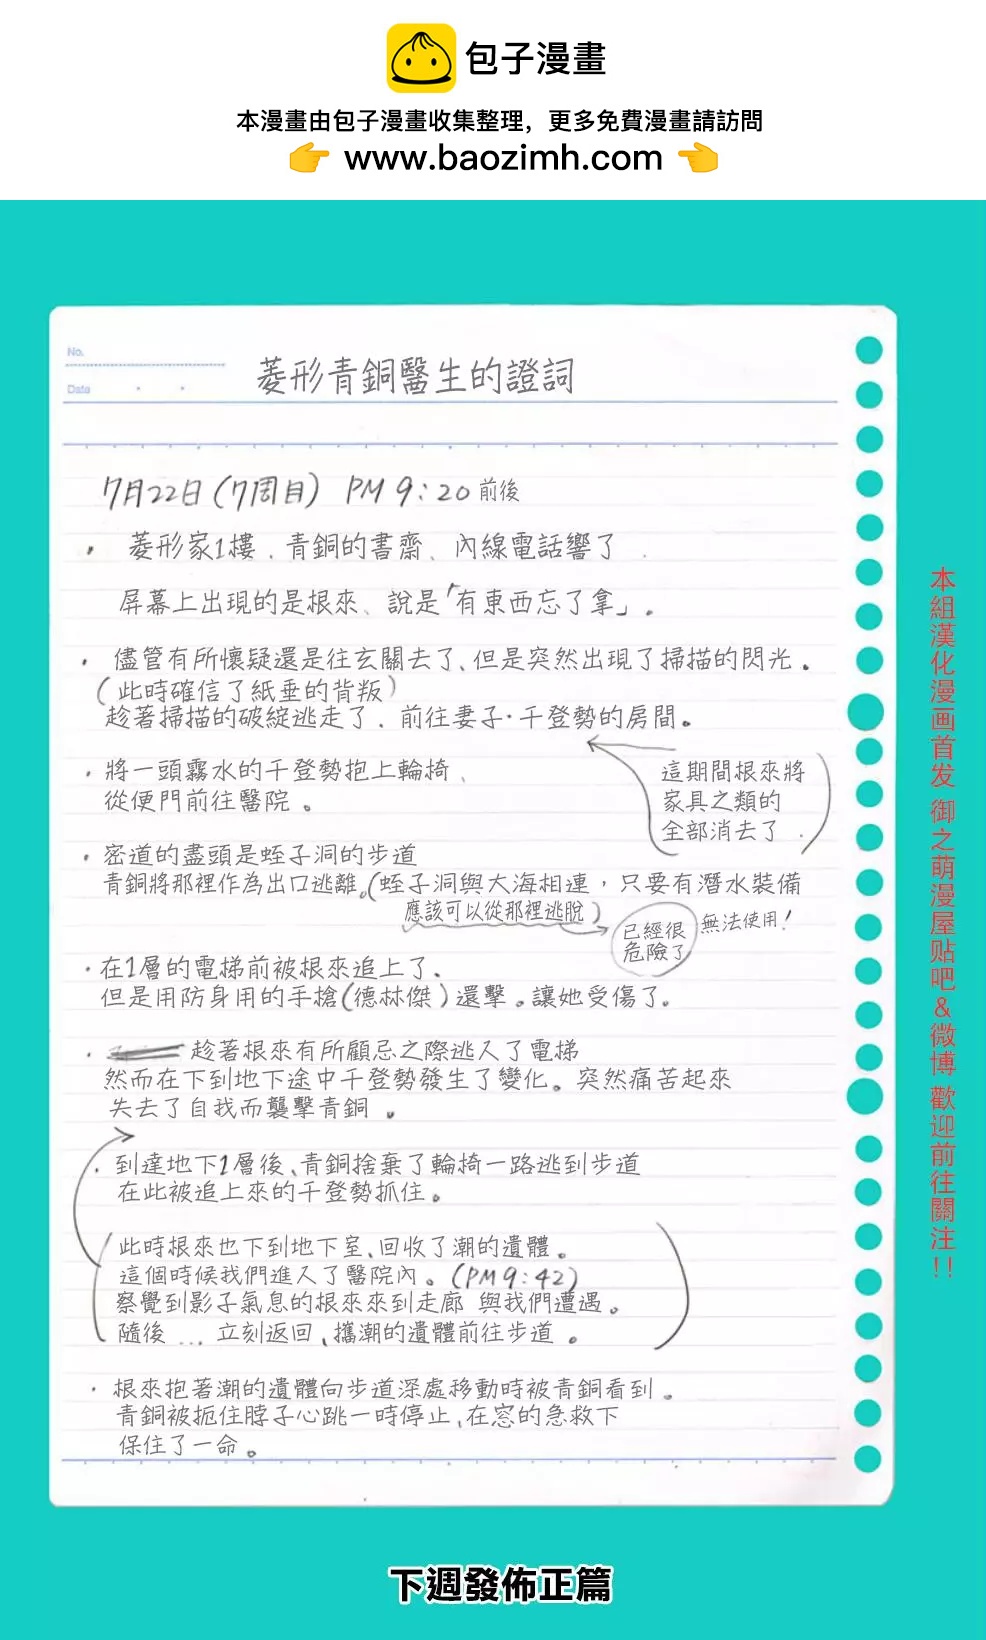 包子漫畫
本漫畫由包子漫畫收集整理，更多免費漫畫請訪問
www.baozimh.com
No.
Date
菱形青銅醫生的證詞
7月22日（7周目） PM 9:20 前後
・ 菱形家1樓、青銅的書齋、內線電話響了、
屏幕上出現的是根來、說是「有東西忘了拿」。
・ 儘管有所懷疑還是往玄關去了、但是突然出現了掃描的閃光。
（此時確信了紙垂的背叛）
趁著掃描的破綻逃走了、前往妻子·千登勢的房間。
這期間根來將
家具之類的
全部消去了、
・將一頭霧水的千登勢抱上輪椅、
從便門前往醫院。
・密道的盡頭是蛭子洞的步道
青銅將那裡作為出口逃離。（蛭子洞與大海相連，只要有潛水裝備
應該可以從那裡逃脫）
已經很
危險了
無法使用！
・在1層的電梯前被根來追上了、
但是用防身用的手槍（德林傑）還擊。讓她受傷了。
・ 趁著根來有所顧忌之際逃入了電梯
然而在下到地下途中千登勢發生了變化。突然痛苦起來
失去了自我而襲擊青銅。
・到達地下1層後、青銅捨棄了輪椅一路逃到步道
在此被追上來的千登勢抓住。
此時根來也下到地下室、回收了潮的遺體。
這個時候我們進入了醫院內。（PM 9:42）
察覺到影子氣息的根來來到走廊 與我們遭遇。
隨後 ... 立刻返回、攜潮的遺體前往步道。
・根來抱著潮的遺體向步道深處移動時被青銅看到。
青銅被扼住脖子心跳一時停止、在窓的急救下
保住了一命。
本組漢化漫画首发 御之萌漫屋贴吧&微博 歡迎前往關注!!
下週發佈正篇